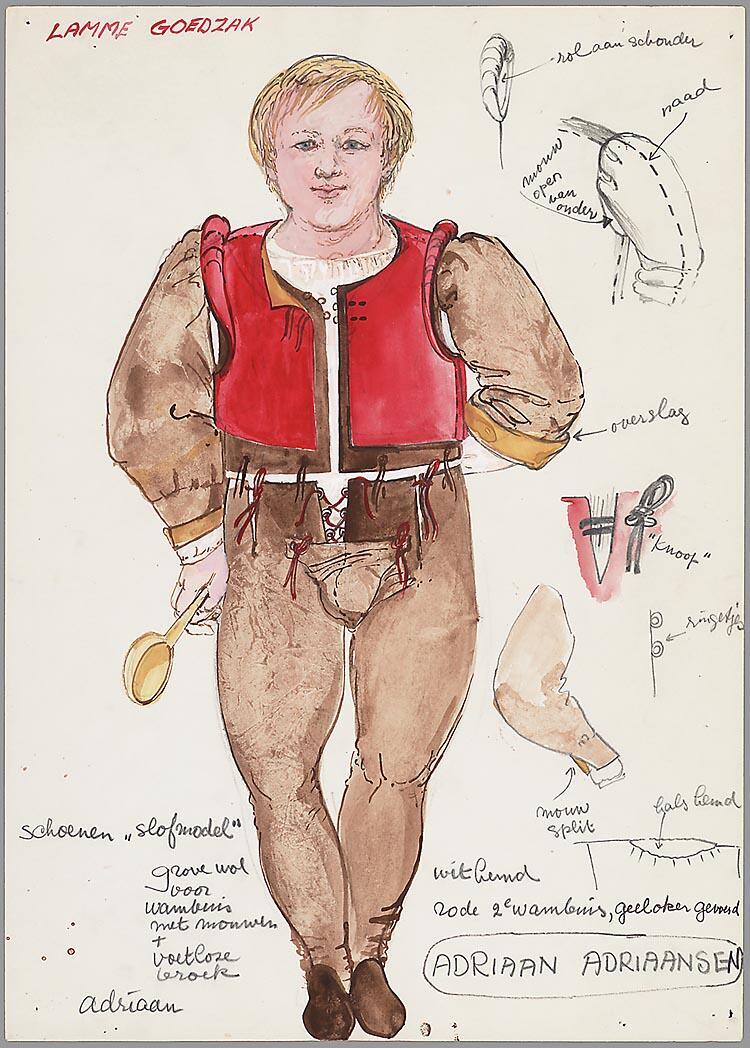 LAMME GOEDZAK
rol aan schouder
naad
mouw
open
van
onder
overslag
"Knoop"
ringetjes
mouw
split
hals hemd
schoenen „slofmodel"
grove wol
voor
wambuis
met mouwen
+
voetloze
broek
adriaan
wit hemd
rode 2e wambuis, geeloker gevoerd
ADRIAAN ADRIAANSEN